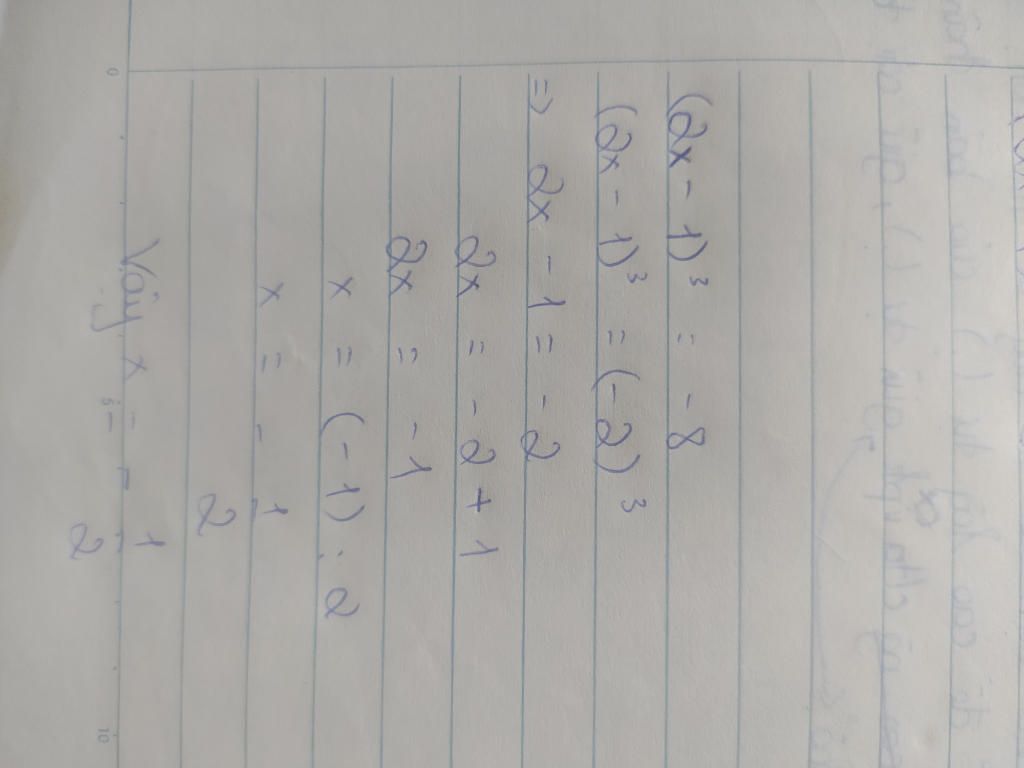 (2x - 1)³ = -8
(2x - 1)³ = (-2)³
=> 2x - 1 = -2
2x = -2 + 1
2x = -1
x = (-1) : 2
x = -1/2
Vậy x = -1/2
0 5 10